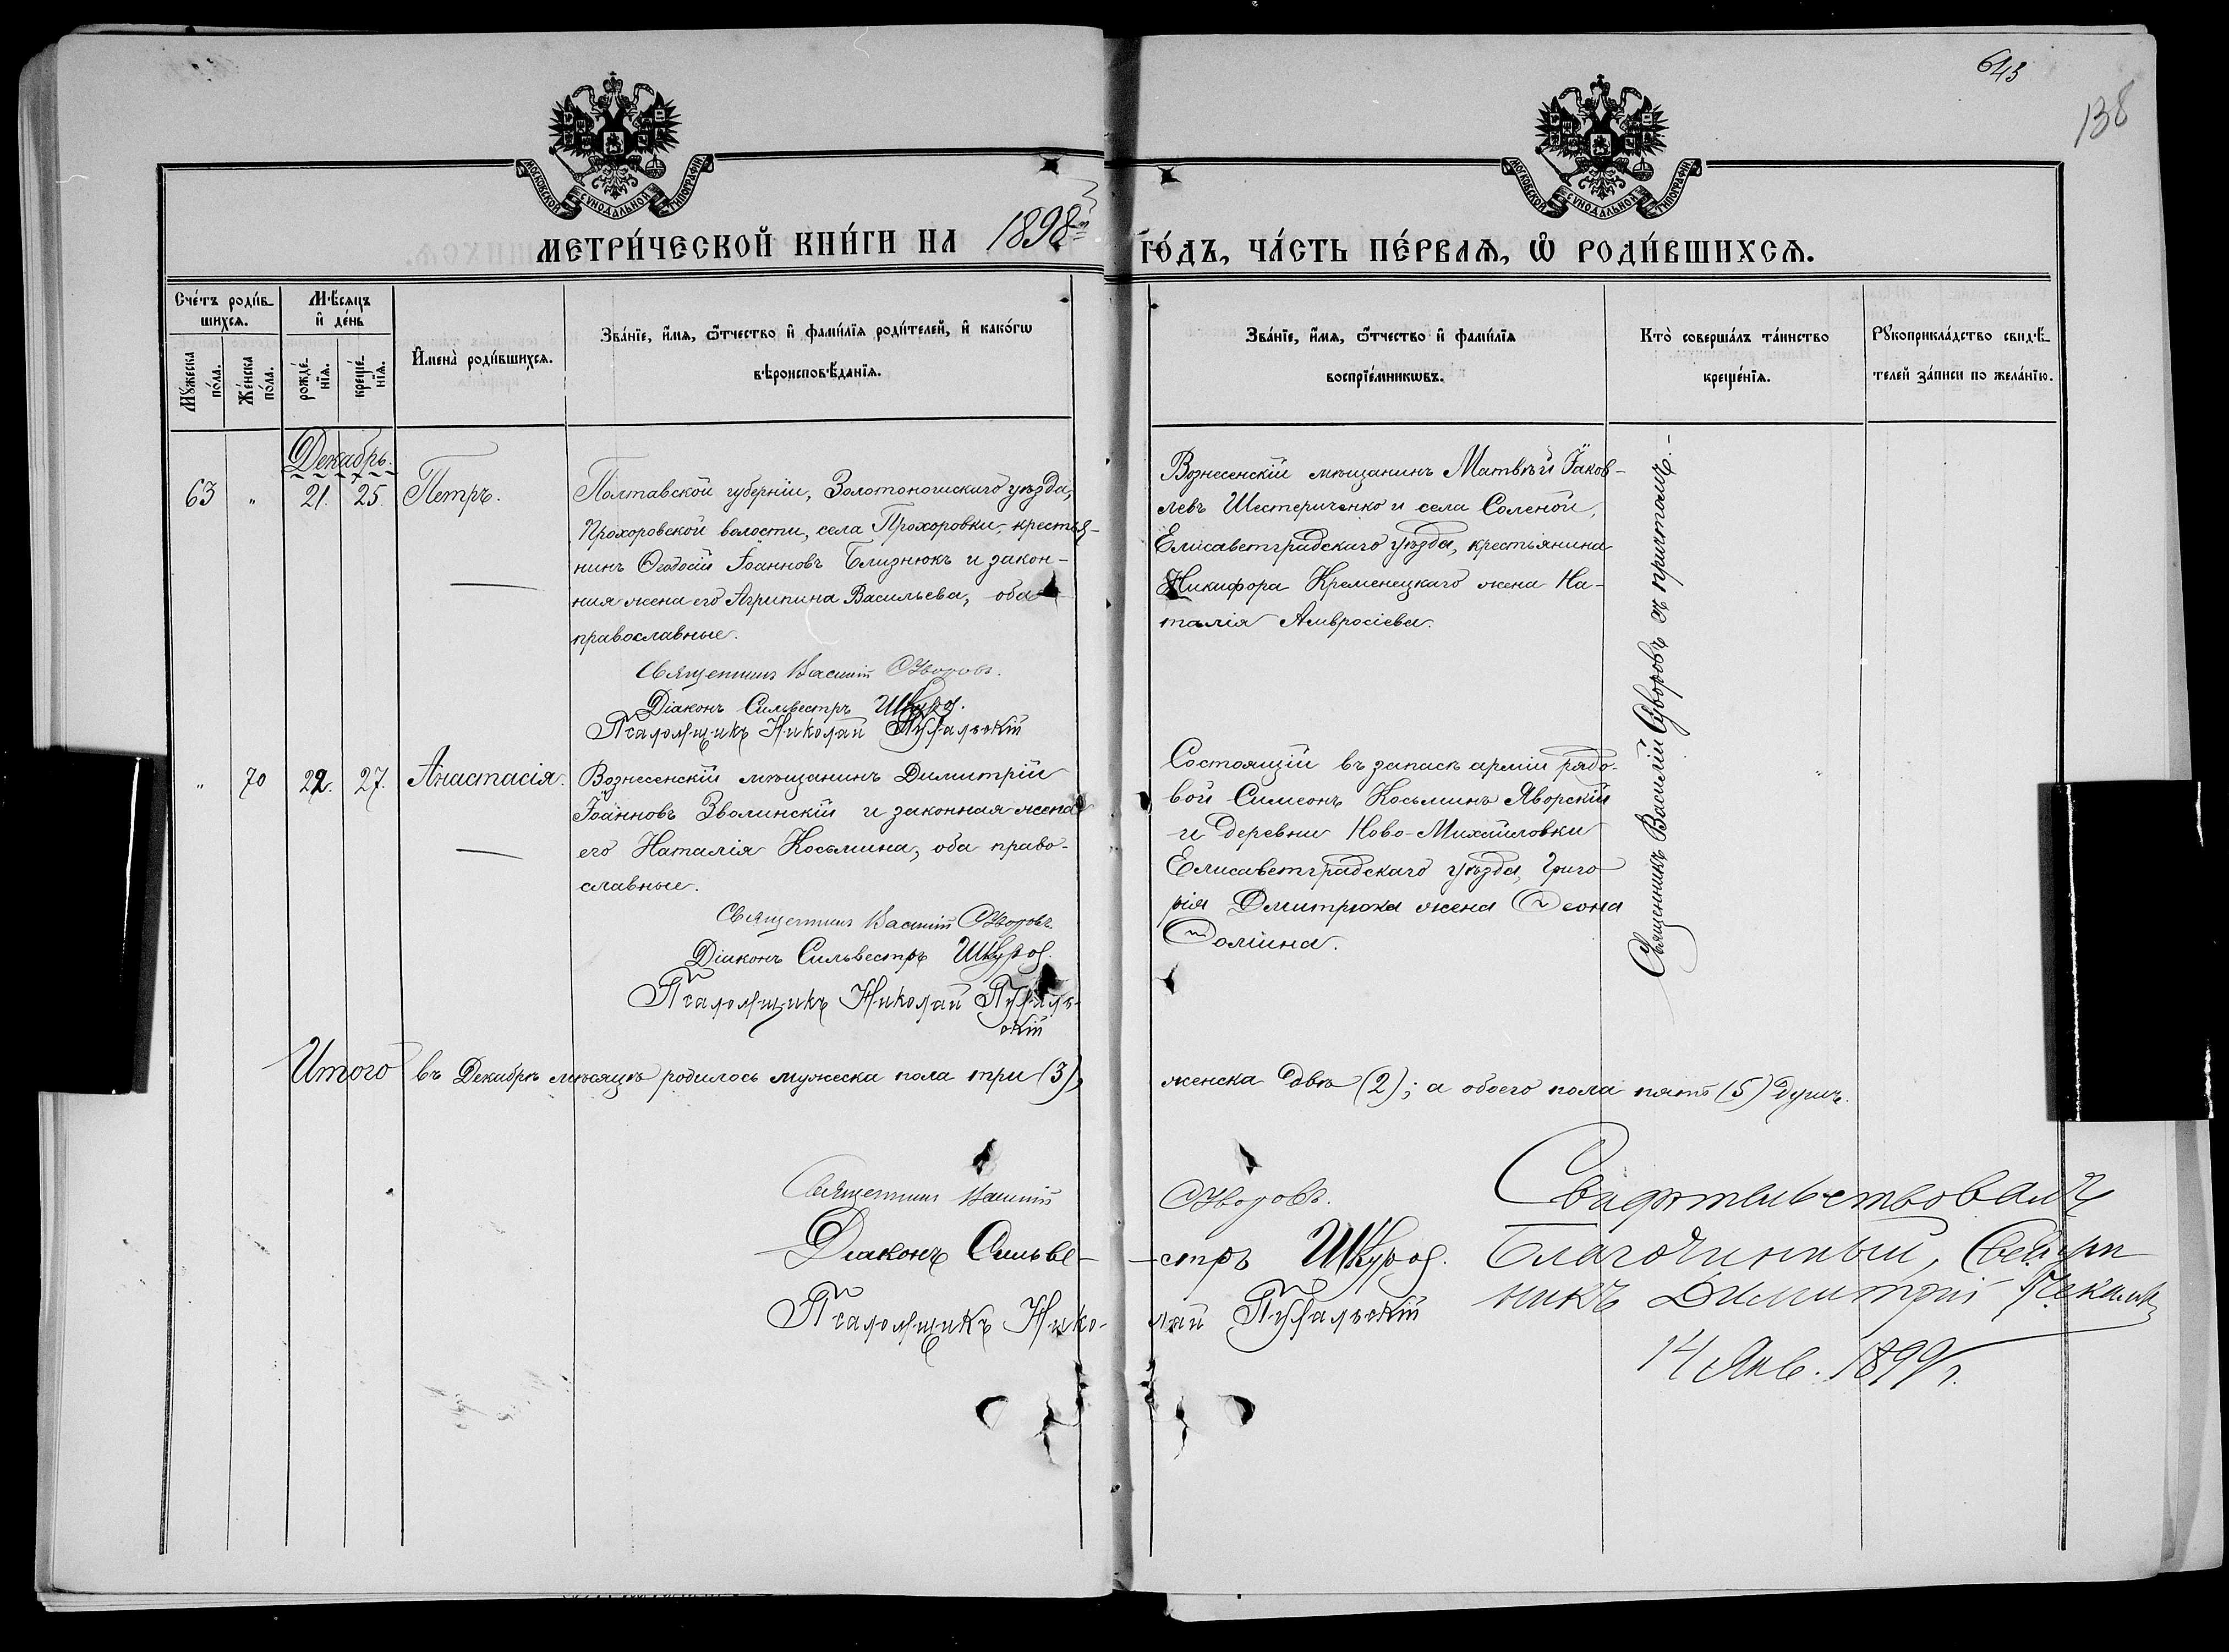 643
138
МОСКОВСКОЙ СѴНОДАЛЬНОЙ ТИПОГРАФІИ
МОСКОВСКОЙ СѴНОДАЛЬНОЙ ТИПОГРАФІИ
МЕТРИ́ЧЕСКОЙ КНИ́ГИ НА 1898й ГО́ДЪ, ЧА́СТЬ ПЕ́РВАѦ, Ѡ҆ РОДИ́ВШИХСѦ.
Сче́тъ роди́в-
шихсѧ.
Мꙋ́жеска по́ла.
Же́нска по́ла.
Мѣ́сѧцъ
и҆ де́нь
рожде́-нїѧ.
креще́-нїѧ.
И҆мена̀ роди́вшихсѧ.
Зва́нїе, и҆́мѧ, ѻ҆́тчество и҆ фами́лїѧ роди́телей, и҆ како́гѡ
вѣроисповѣ́данїѧ.
Зва́нїе, и҆́мѧ, ѻ҆́тчество и҆ фами́лїѧ
воспрїе́мникѡвъ.
Кто̀ соверша́лъ та́инство
креще́нїѧ.
Рꙋкоприкла́дство свидѣ́-
телей за́писи по жела́нїю.
Декабрь.
63 " 21. 25. Петръ.
Полтавской губерніи, Золотоношскаго уѣзда,
Прохоровской волости, села Прохоровки, крестья-
нинъ Ѳеодосій Іоанновъ Близнюкъ и закон-
ная жена его Агрипина Васильева, оба
православные.
Священникъ Василій Суворовъ.
Діаконъ Сильвестръ
Псаломщикъ Николай
Вознесенскій мѣщанинъ Матвѣй Іаков-
левъ Шестериченко и села Соленой,
Елисаветградскаго уѣзда, крестьянина
Никифора Кременецкаго жена На-
талія Амвросіева.
Священникъ Василій Суворовъ съ причтомъ.
" 70 22. 27. Анастасія.
Вознесенскій мѣщанинъ Димитрій
Іоанновъ Зволинскій и законная жена
его Наталія Косьмина, оба право-
славные.
Священникъ Василій Суворовъ.
Діаконъ Сильвестръ
Псаломщикъ Николай
Состоящій въ запасѣ арміи рядо-
вой Симеонъ Косьминъ Яворскій
и деревни Ново-Михайловки
Елисаветградскаго уѣзда, Григо
рія Дмитрюка жена
Итого въ Декабрѣ мѣсяцѣ родилось мужеска пола три (3), женска двѣ (2); а обоего пола пять (5) душъ.
Священникъ Василій Суворовъ.
Діаконъ Сильве-стръ
Псаломщикъ Нико-лай
Свидѣтельствовалъ
Благочинный, Священ
никъ Димитрій
14 Янв. 1899 г.